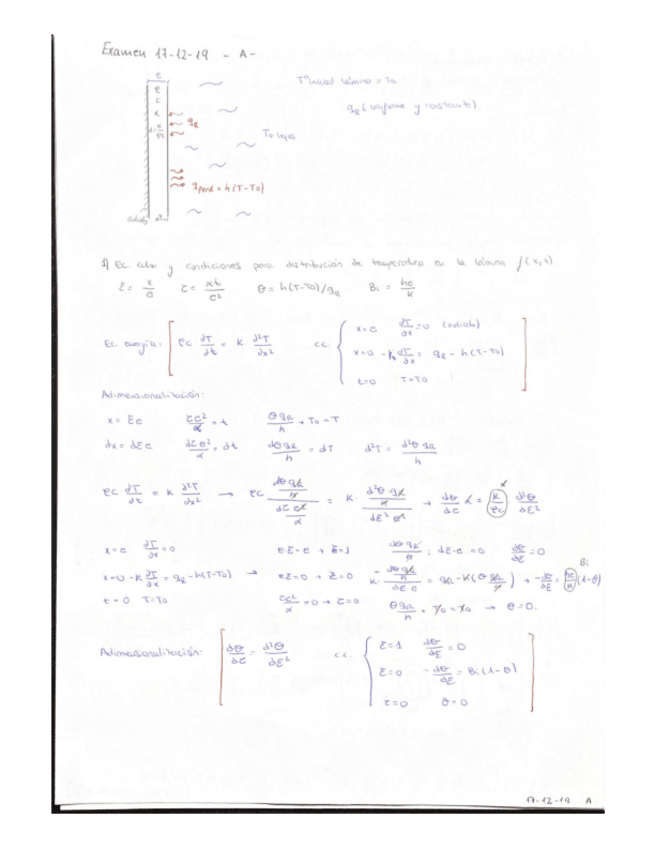 Examen 17-12-19 - A-
e
ρ
c
k
Tª inicial lámina = T₀
q_R (uniforme y constante).
q_R
T₀ lejos
q_perd = h(T-T₀)
1) Ec. calor y condiciones para distribución de temperatura en la lámina f(x,t)
ξ = x/e   τ = αt/e²   θ = h(T-T₀)/q_R   Bi = he/k
Ec. energía: [ ρc ∂T/∂t = k ∂²T/∂x²   cc. {
x=e   ∂T/∂x = 0 (adiab)
x=0   -k ∂T/∂x = q_R - h(T-T₀)
t=0   T=T₀
Adimensionalización:
x = ξe   τe²/α = t   θq_R/h + T₀ = T
dx = dξe   dτe²/α = dt   dθq_R/h = dT   d²T = d²θq_R/h
ρc ∂T/∂t = k ∂²T/∂x² → ρc (dθq_R/h)/(dτe²/α) = k · (d²θ·q_R/h)/(dξ²e²) → dθ/dτ α = (k/ρc) d²θ/dξ²
x=e   ∂T/∂x = 0   e·ξ=e → ξ=1   dθq_R/h : dξ·e = 0   dθ/dξ = 0
x=0   -k ∂T/∂x = q_R - h(T-T₀) → eξ=0 → ξ=0   -k (dθq_R/h)/(dξ e) = q_R - h(θq_R/h) → -dθ/dξ = (he/k)(1-θ)
Bi
t=0   T=T₀   τe²/α = 0 → τ=0   θq_R/h + T₀ = T₀ → θ=0.
Adimensionalización: [ dθ/dτ = d²θ/dξ²   cc. {
ξ=1   dθ/dξ = 0
ξ=0   -dθ/dξ = Bi(1-θ)
τ=0   θ=0
17-12-19 A